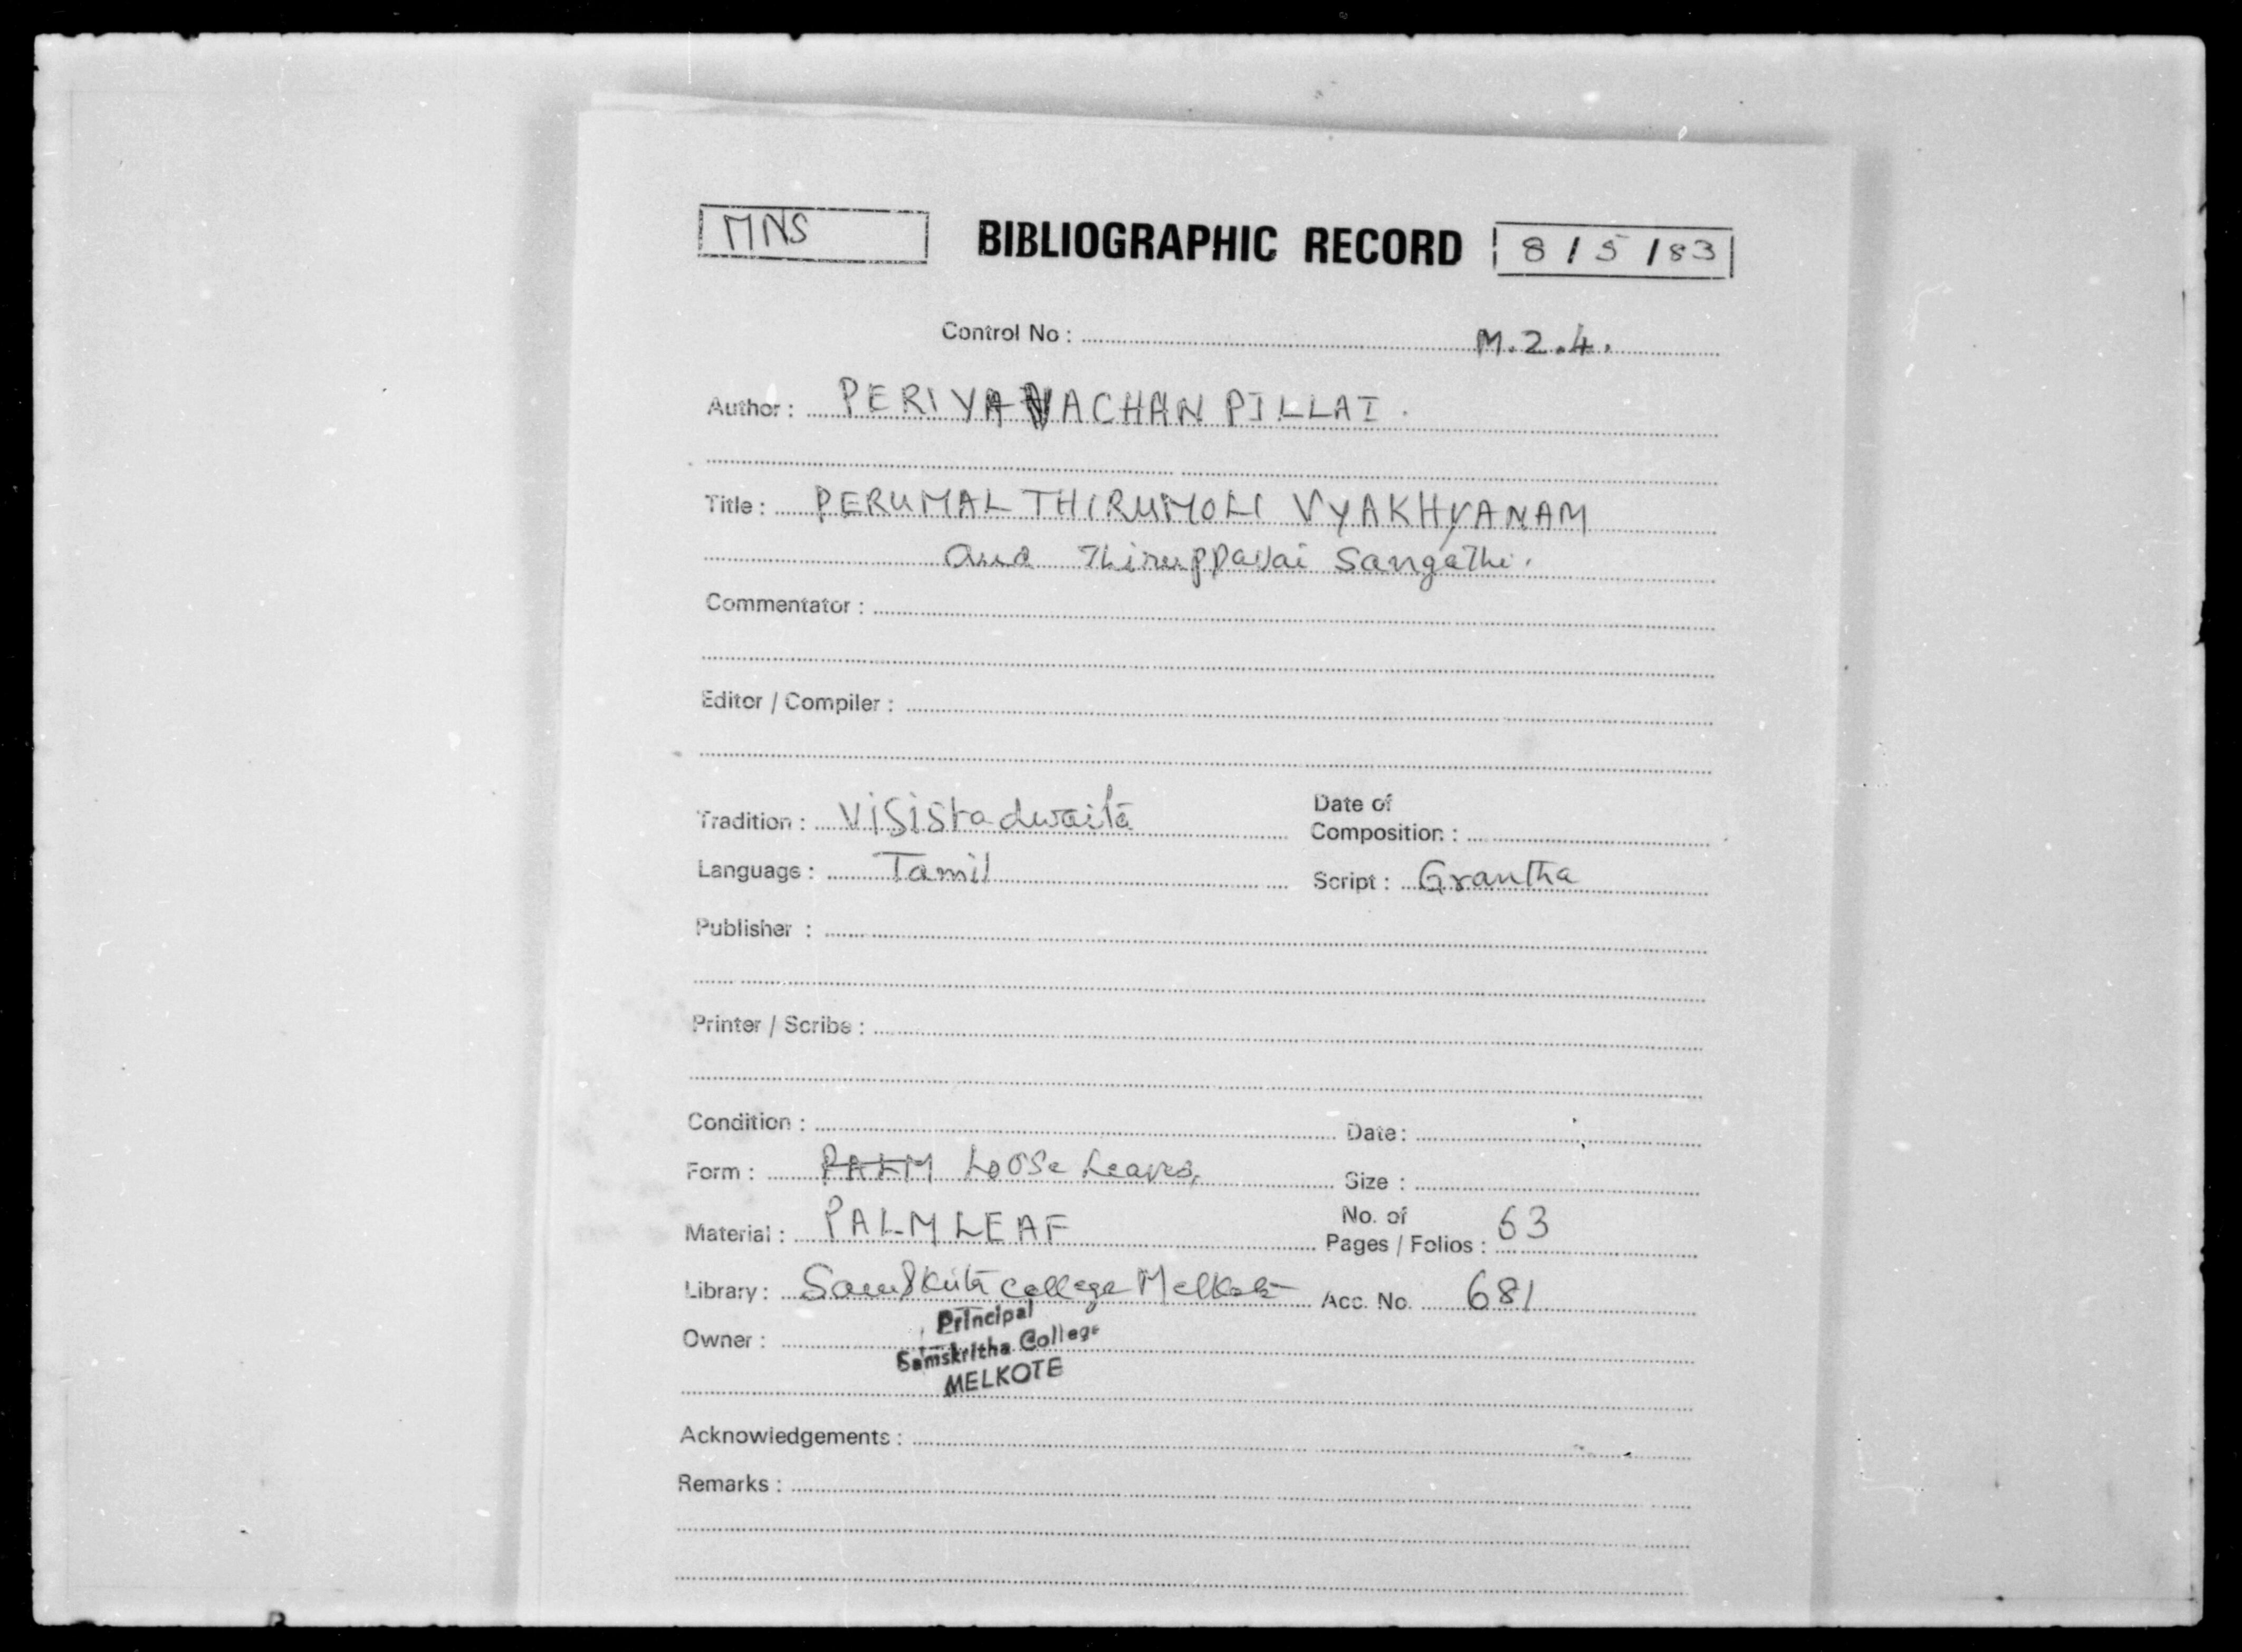 MNS BIBLIOGRAPHIC RECORD 8/5/83
Control No : M.2.4.
Author : PERIYA VACHAN PILLAI.
Title : PERUMAL THIRUMOLI VYAKHYANAM
and Thiruppavai Sangathi.
Commentator :
Editor / Compiler :
Tradition : Visistadwaita Date of Composition :
Language : Tamil Script : Grantha
Publisher :
Printer / Scribe :
Condition : Date :
Form : PALM Loose Leaves, Size :
Material : PALM LEAF No. of Pages / Folios : 63
Library : Samskrita College Melkote Acc. No. 681
Owner : Principal
Samskritha College
MELKOTE
Acknowledgements :
Remarks :